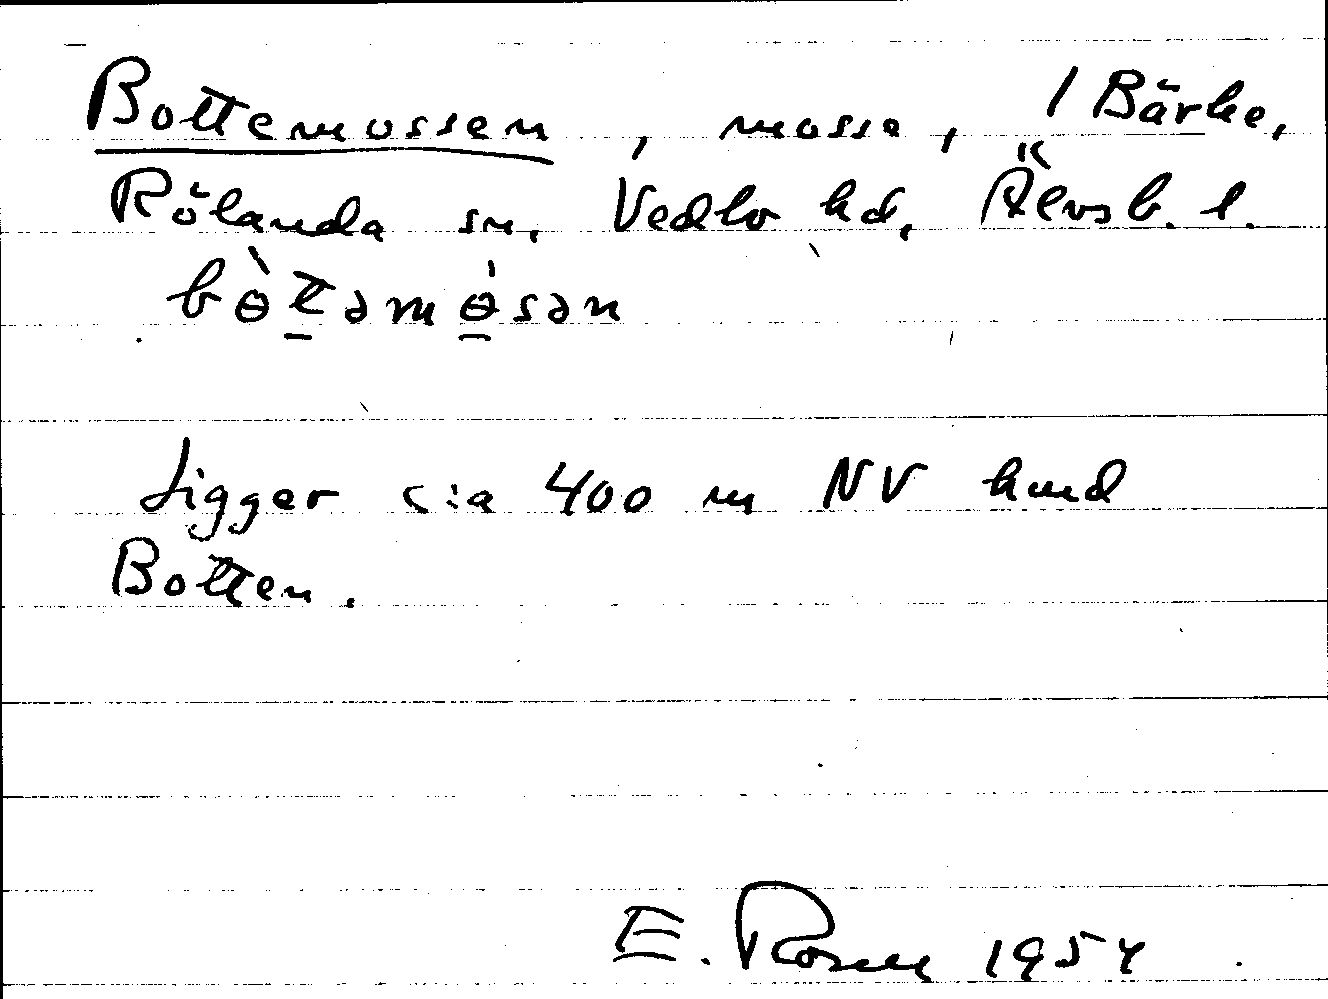 Bottemossen, mosse, 1 Bärke,
Rölanda sn, Vedbo hd, Älvsb. l.
bòt̲əmө̲́sən
Ligger c:a 400 m NV hmd
Botten.
E. Rosen 1954